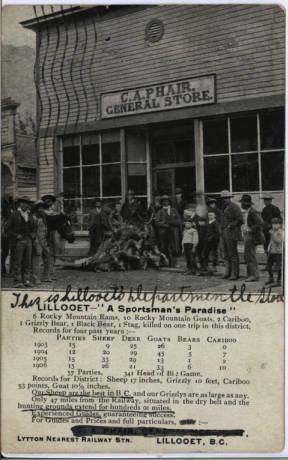 C. A. PHAIR.
GENERAL STORE.
This is Lillooet Department the store
LILLOOET—"A Sportsman's Paradise"
6 Rocky Mountain Rams, 10 Rocky Mountain Goats, 2 Caribou,
1 Grizzly Bear, 1 Black Bear, 1 Stag, killed on one trip in this district.
Records for four past years:—
PARTIES SHEEP DEER GOATS BEARS CARIBOO
1903 15 9 25 26 3 9
1904 12 20 29 45 5 7
1905 15 35 29 13 1 2
1906 15 26 21 33 6 10
57 Parties. 341 Head of Big Game.
Records for District: Sheep 17 inches, Grizzly 10 feet, Cariboo
53 points, Goat 10½ inches.
Our Sheep are the best in B.C. and our Grizzlys are as large as any.
Only 47 miles from the Railway, situated in the dry belt and the
hunting grounds extend for hundreds of miles.
Experienced Guides, guaranteeing success.
For Guides and Prices and full particulars,
LYTTON NEAREST RAILWAY STN. LILLOOET, B.C.